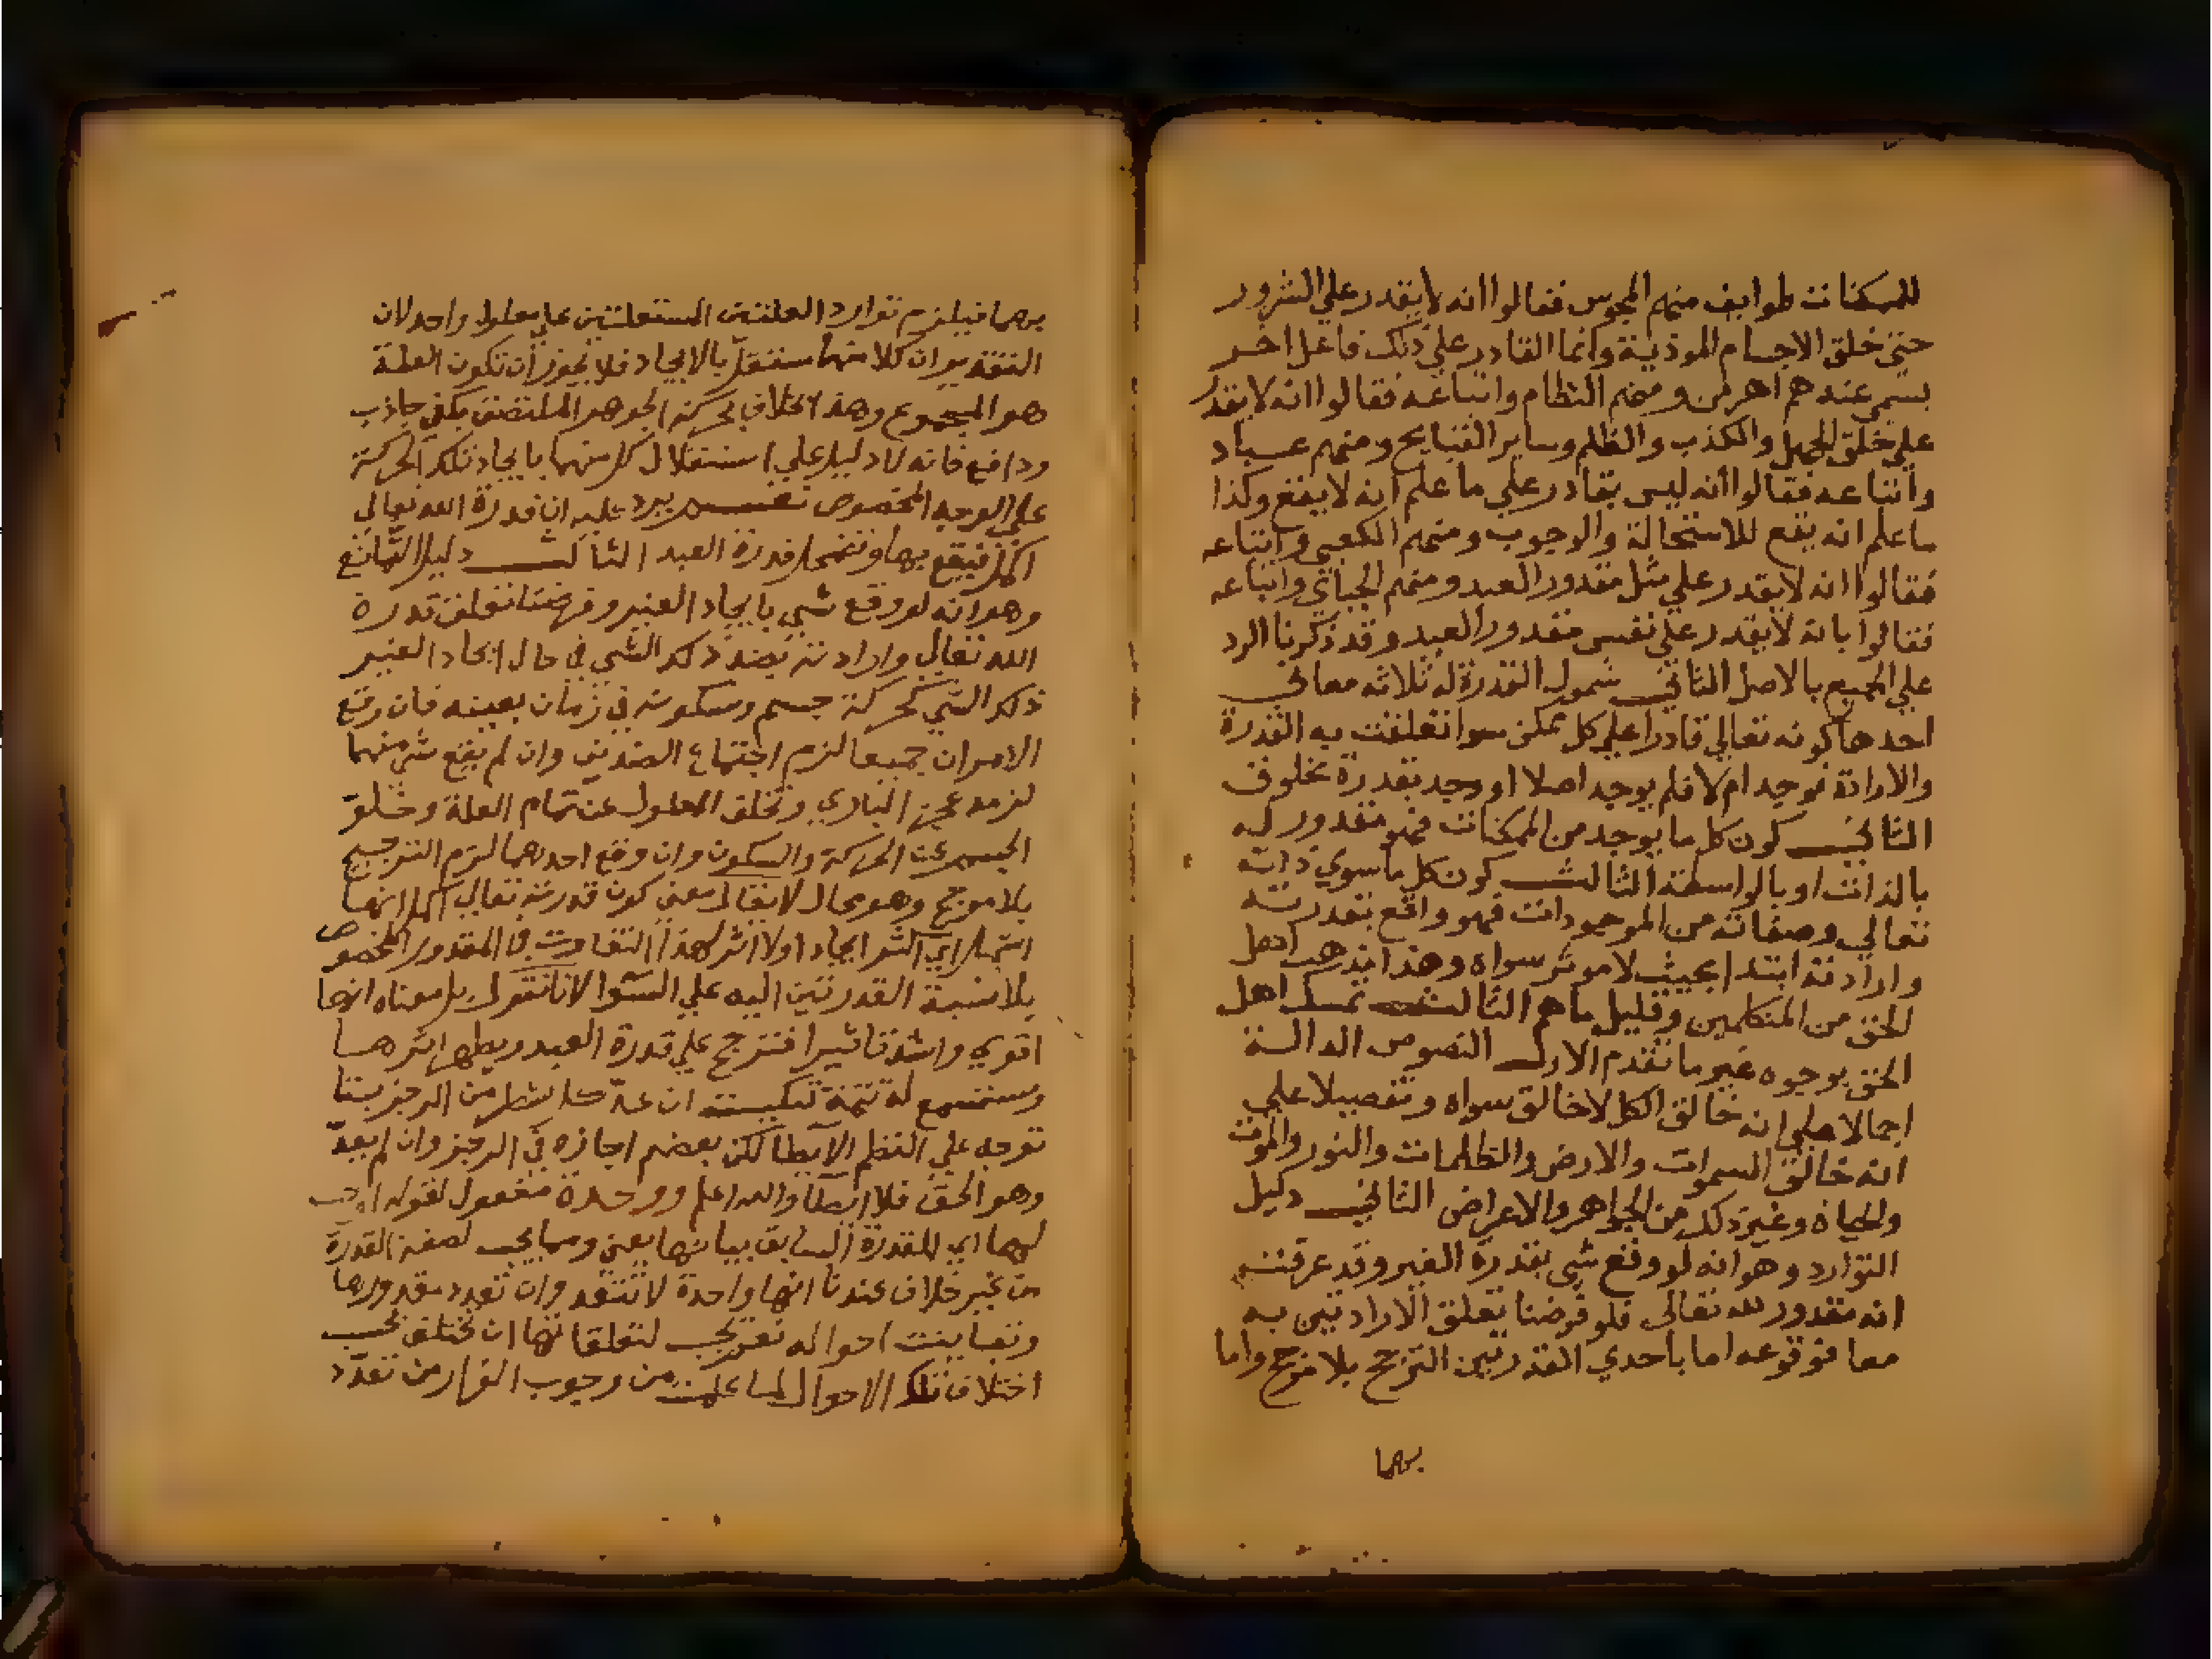 للممكنات طوايف منهم المجوس فقالوا انه لا يقدر علي الشرور
حتي خلق الاجسام الموذية وانما القادر علي ذلك فاعل اخر
يسمي عندهم اهرمن ومنهم النظام واتباعه فقالوا انه لا يقدر
علي خلق الجهل والكذب والظلم وساير القبايح ومنهم عباد
واتباعه فقالوا انه ليس بقادر علي ما علم انه لا يقع وكذا
ما علم انه يقع للاستحالة والوجوب ومنهم الكعبي واتباعه
فقالوا انه لا يقدر علي مثل مقدور العبد ومنهم الجبائي واتباعه
فقالوا بانه لا يقدر علي نفس مقدور العبد وقد ذكرنا الرد
علي الجميع بالاصل الثاني شمول القدرة له ثلاثه معاني
احدها كونه تعالي قادرا علي كل ممكن سوا تعلقت به القدرة
والارادة فوجد ام لا فلم يوجد اصلا او وجد بقدرة مخلوق
الثاني كون كل ما يوجد من الممكنات فهو مقدور له
بالذات او بالواسطة الثالث كون كل ما سوي ذاته
تعالي وصفاته من الموجودات فهو واقع بقدرته
وارادته ابتدا بحيث لا موثر سواه وهذا مذهب اهل
الحق من المتكلمين وقليل ما هم الثالث تمسك اهل
الحق بوجوه غير ما تقدم الاول النصوص الدالة
اجمالا علي انه خالق الكل لا خالق سواه وتفصيلا علي
انه خالق السموات والارض والظلمات والنور والموت
والحياة وغير ذلك من الجواهر والاعراض الثاني دليل
التوارد وهو انه لو وقع شي بقدرة الغير وقد عرفت
انه مقدور لله تعالي فلو فرضنا تعلق الارادتين به
معا فوقوعه اما باحدي القدرتين الترجح بلا مرجح واما
بهما
بهما فيلزم توارد العلتين المستقلتين علي معلول واحد لان
التقدير ان كلا منهما مستقل بالايجاد فلا يجوز ان تكون العلة
هو المجموع وهذا بخلاف حركة الجوهر الملتصق بكفي جاذب
ودافع فانه لا دليل علي استقلال كل منهما بايجاد تلك الحركة
علي الوجه المخصوص نعم يرد عليه ان قدرة الله تعالي
اكمل فيقع بها وتضمحل قدرة العبد الثالث دليل التمانع
وهو انه لو وقع شي بايجاد الغير وفرضنا تعلق قدرة
الله تعالي وارادته بضد ذلك الشي في حال ايجاد الغير
ذلك الشي كحركة جسم وسكونه في زمان بعينه فان وقع
الامران جميعا لزم اجتماع الضدين وان لم يقع شي منهما
لزم عجز الباري وتخلف المعلول عن تمام العلة وخلو
الجسم عن الحركة والسكون وان وقع احدهما لزم الترجيح
بلا مرجح وهو محال لا يقال معني كون قدرته تعالي اكمل انها
اشمل اي اكثر ايجادا ولا اثر لهذا التفاوت في المقدور المخصوص
بلا نسبة القدرتين اليه علي السوا لانا نقول بل معناه انها
اقوي واشد تاثيرا فترجح علي قدرة العبد ويظهر اثرها
وستسمع له تتمة تنكيت ان عد كل شطر من الرجز بيتا
توجه علي النظم الايطا لكن بعضهم اجازه في الرجز وان لم يعد
وهو الحق فلا ايطا والله اعلم ووحدة مفعول لقوله اوجب
لها اي للقدرة السابق بيانها يعني ومما يجب لصفة القدرة
من غير خلاف عندنا انها واحدة لا تتعدد وان تعدد مقدورها
وتباينت احواله نعم يجب لتعلقاتها ان تختلف بحسب
اختلاف تلك الاحوال لما علمت من وجوب الفرار من تعدد